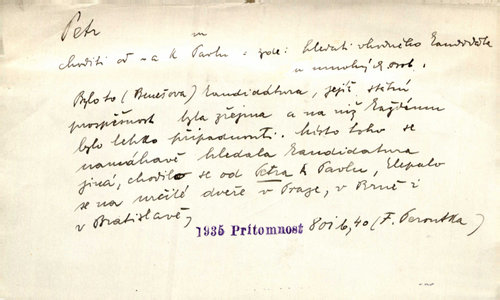 Petr
choditi od -a k Pavlu = zde: hledati vhodného kandidáta
u mnohých osob.
Bylo to (Benešova) kandidatura, jejíž státní
prospěšnost byla zřejma a na niž každému
bylo lehko připadnout. Místo toho se
namáhavě hledala kandidatura
jiná, chodilo se od Petra k Pavlu, klepalo
se na určité dveře v Praze, v Brně i
v Bratislavě,
1935 Prítomnost 801b,40 (F. Peroutka)